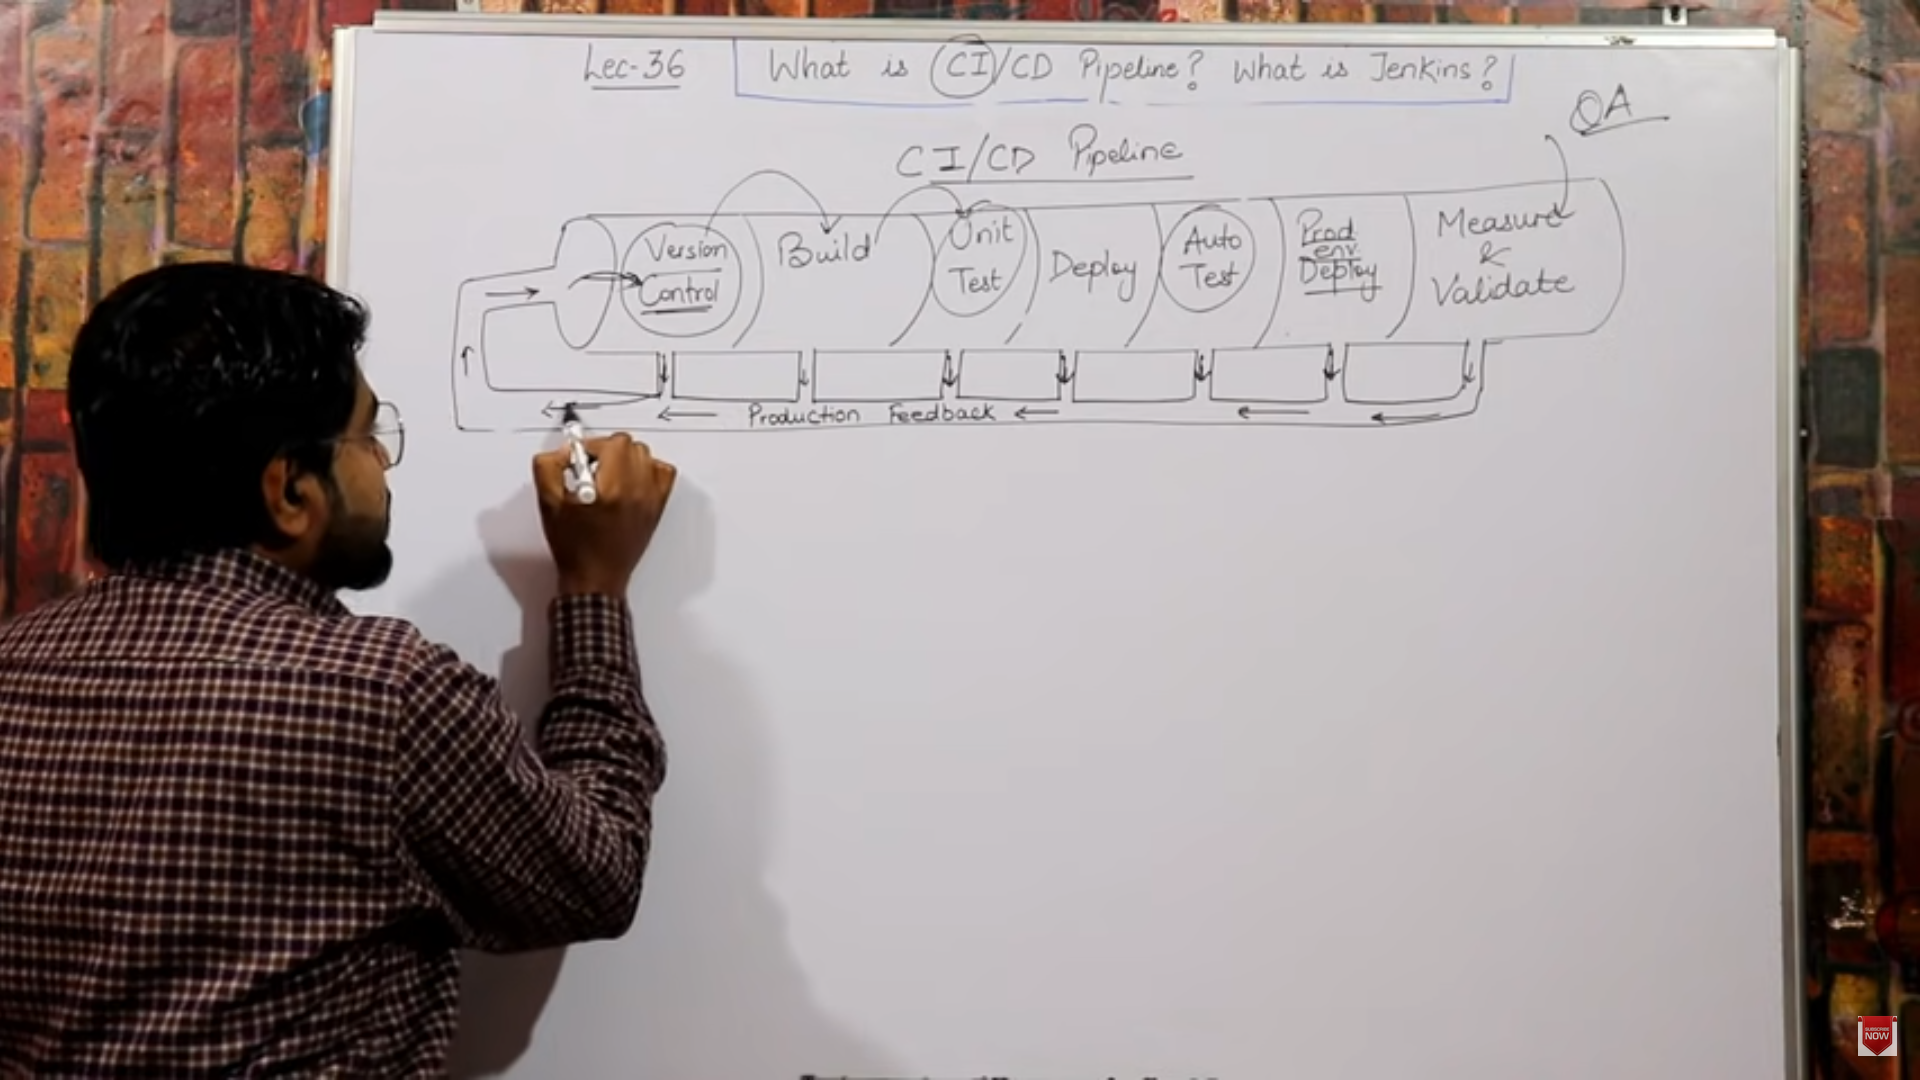 Lec-36 What is CI/CD Pipeline? What is Jenkins?
QA
CI/CD Pipeline
Version
Control
Build
Unit
Test
Deploy
Auto
Test
Prod
env
Deploy
Measure
&
Validate
Production Feedback
SUBSCRIBE
NOW